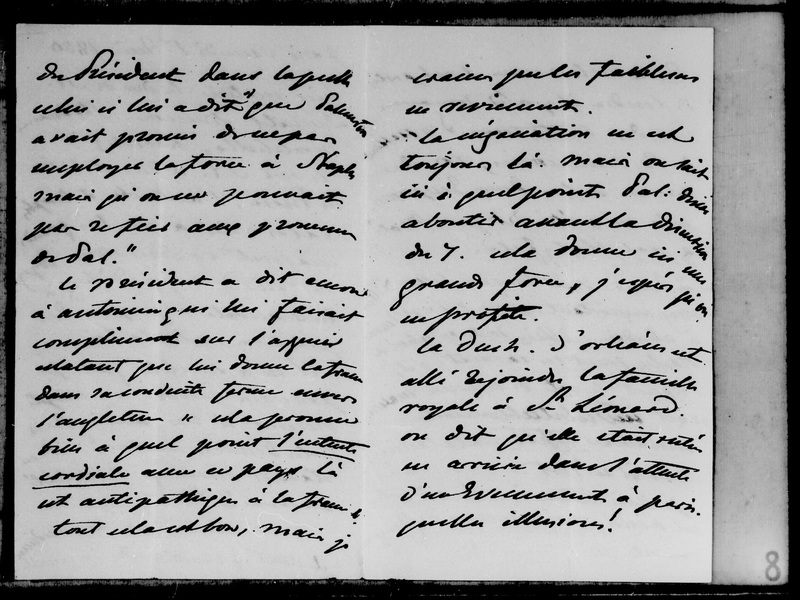 du Président dans laquelle
celui ci lui a dit "que Palmerston
avait promis de ne pas
employer la force à Naples
mais qu'on ne pouvait
pas se fier aux promesses
de Pal."
le président a dit encore
à antonini qui lui faisait
compliment sur l'appui
éclatant que lui donne la france
dans sa conduite ferme envers
l'angleterre "cela prouve
bien à quel point l'entente
cordiale avec ce pays là
est antipathique à la france".
tout cela est bon, mais je
crains que les faiblesses
ne reviennent.
la négociation en est
toujours là. mais on sait
ici à quel point Pal: désire
aboutir avant la discussion
du 7. cela donne ici une
grande force, j'espère qu'on
en profite.
la Duch. d'orléans est
allé rejoindre la famille
royale à St Léonard.
on dit qu'elle était restée
en arrière dans l'attente
d'un Evenement à paris.
quelles illusions!
8